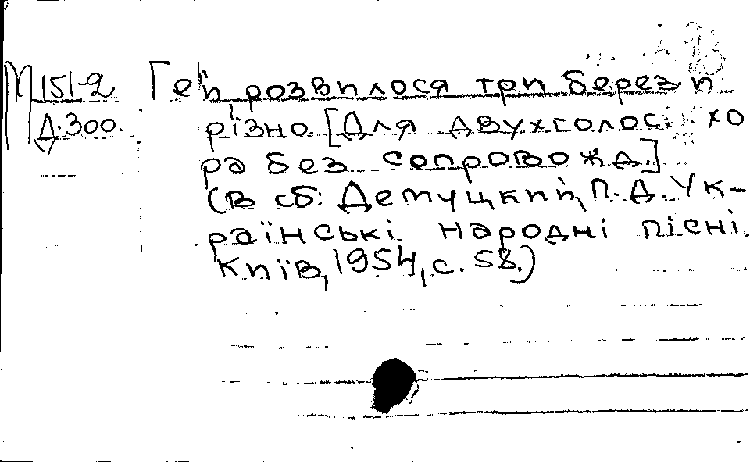 М151-2 Гей розвилося три берези
Д.300. різно [Для двухголос. хо
ра без сопровожд.]
(в сб: Демуцкий, П.Д. Ук-
раїнські народні пісні.
Київ, 1954, с. 58.)